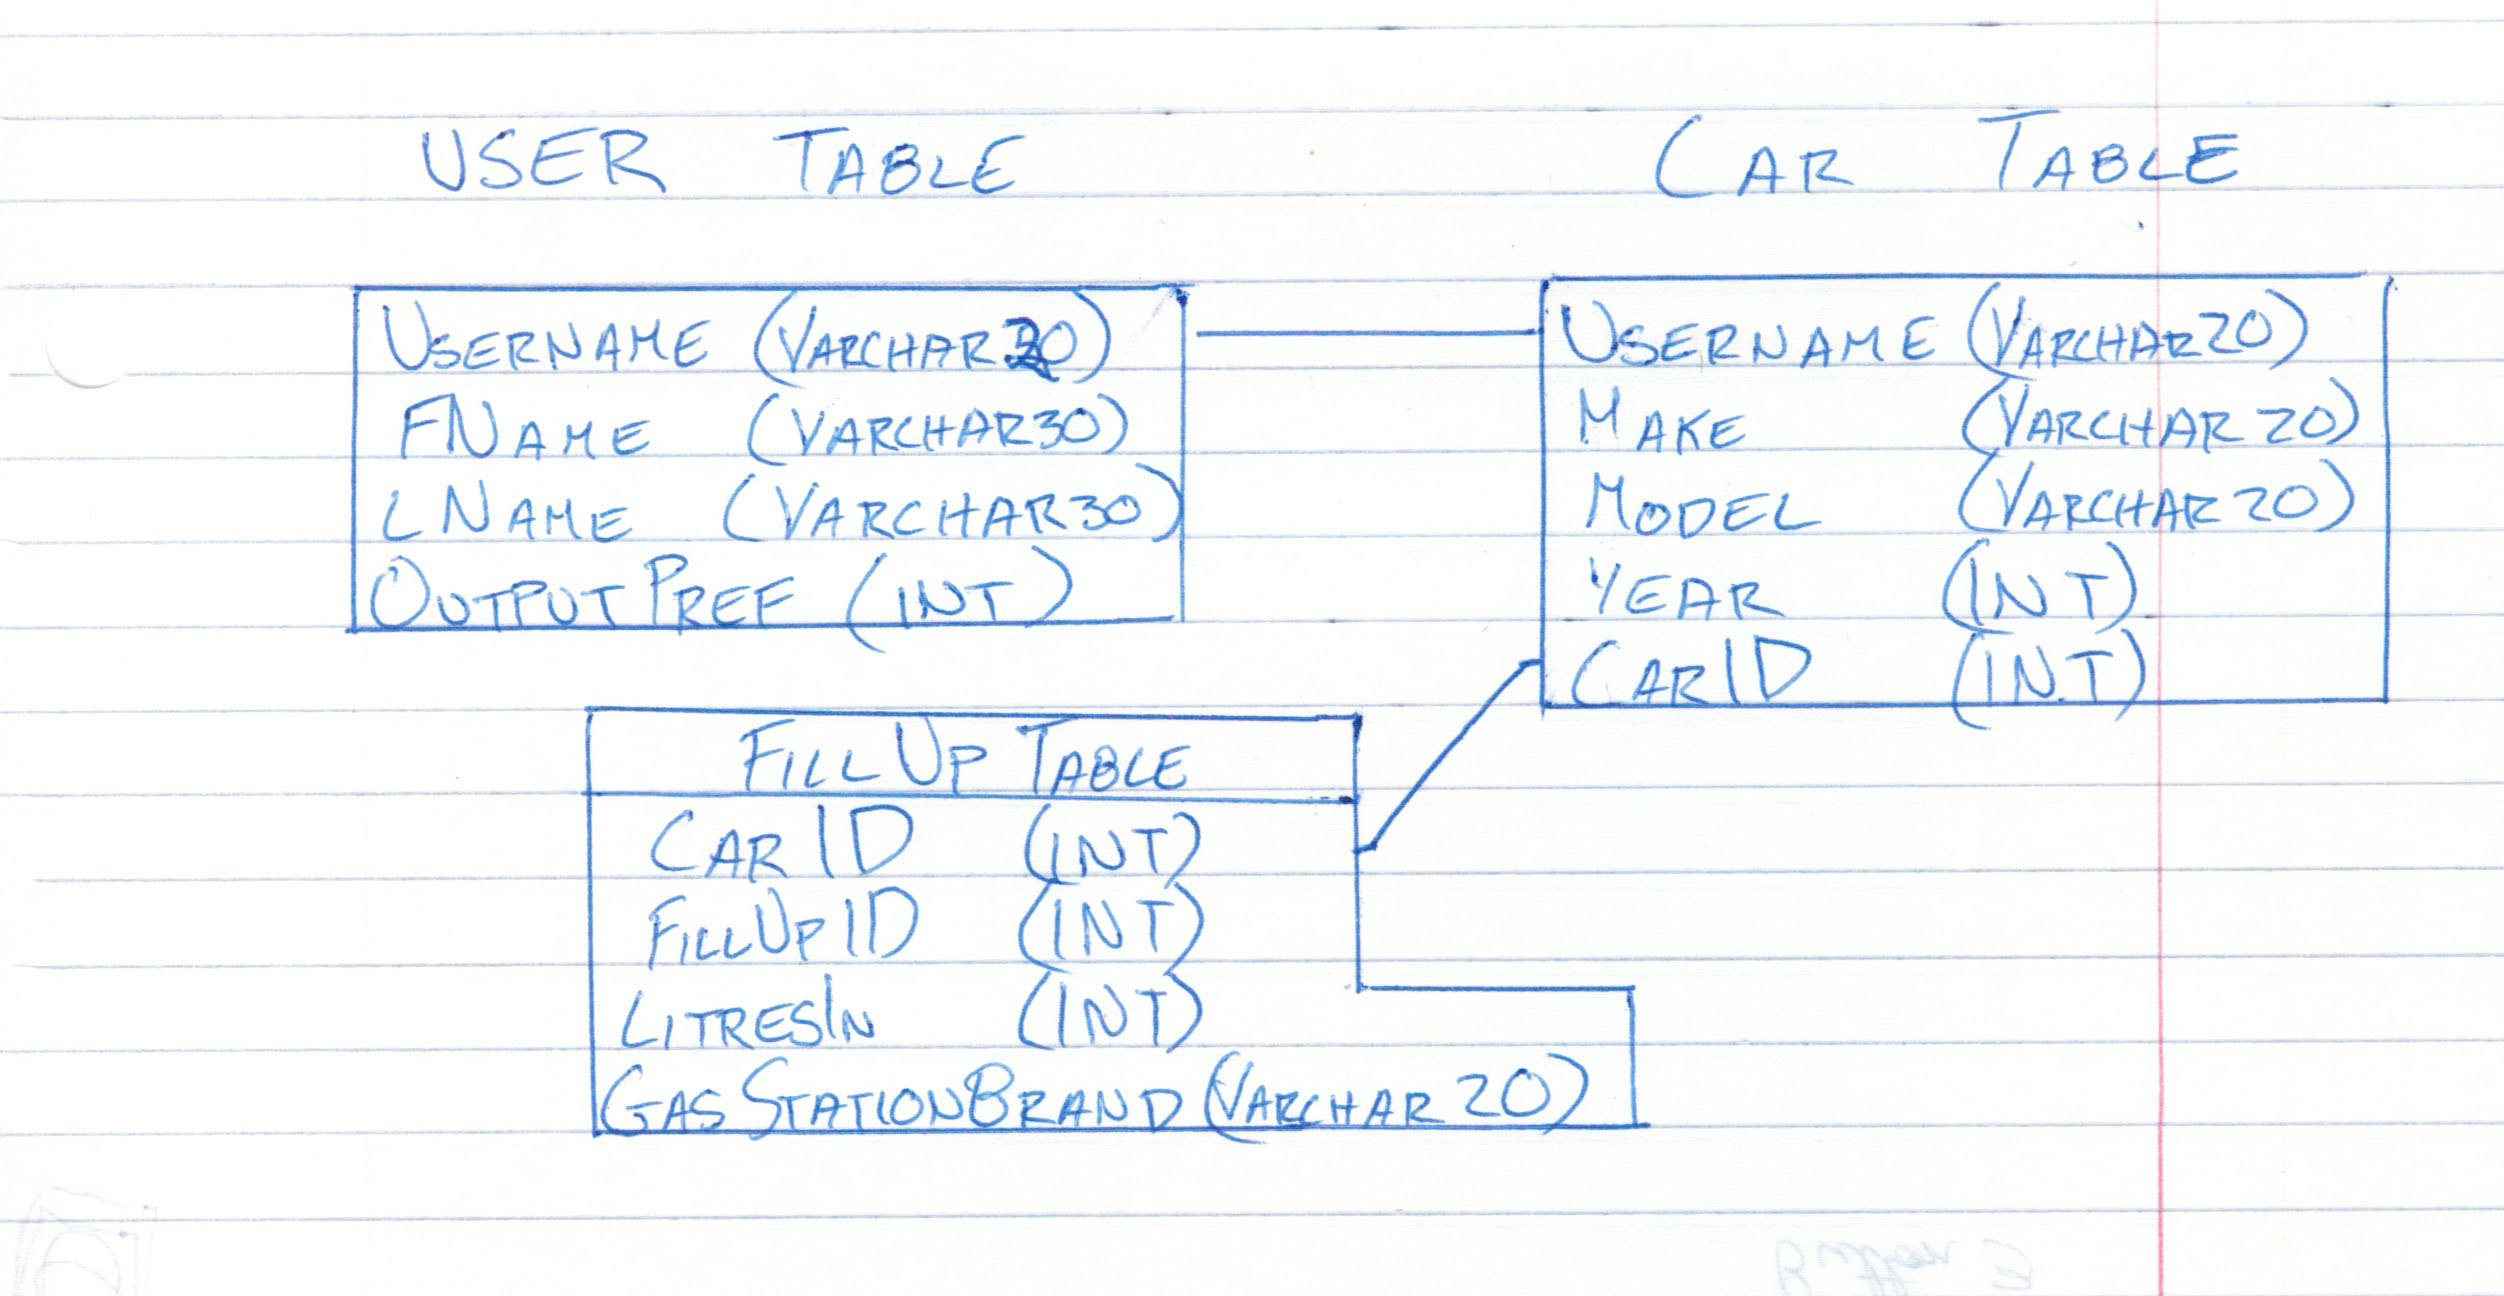 USER TABLE
CAR TABLE
USERNAME (VARCHAR20)
FNAME (VARCHAR30)
LNAME (VARCHAR30)
OUTPUTPREF (INT)
USERNAME (VARCHAR20)
MAKE (VARCHAR 20)
MODEL (VARCHAR 20)
YEAR (INT)
CARID (INT)
FILLUP TABLE
CARID (INT)
FILLUPID (INT)
LITRESIN (INT)
GASSTATIONBRAND (VARCHAR 20)